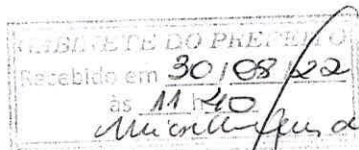 GABINETE DO PREFEITO
Recebido em 30/08/22
às 11 h 40